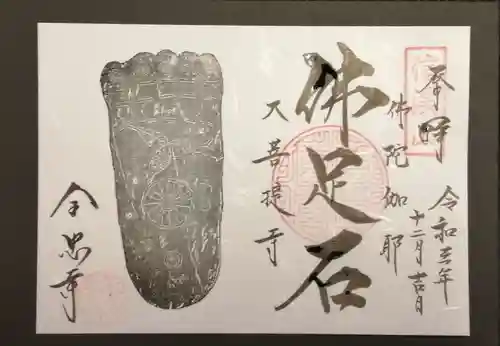 奉拝
令和三年
十二月吉日
佛陀伽耶
佛足石
大菩提寺
全忠寺